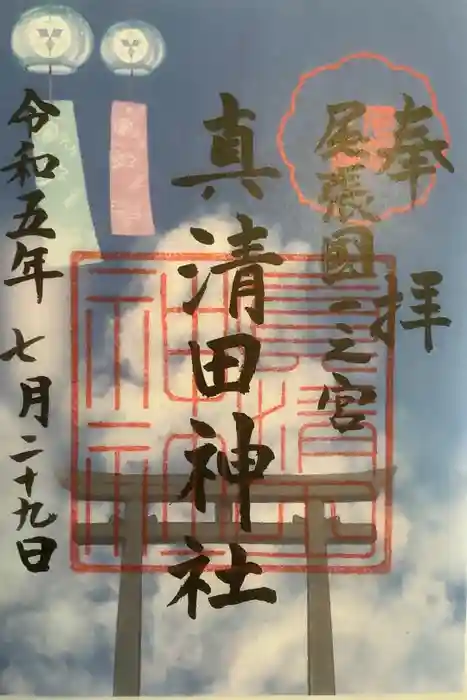 奉拝
尾張國一之宮
真清田神社
令和五年 七月二十九日